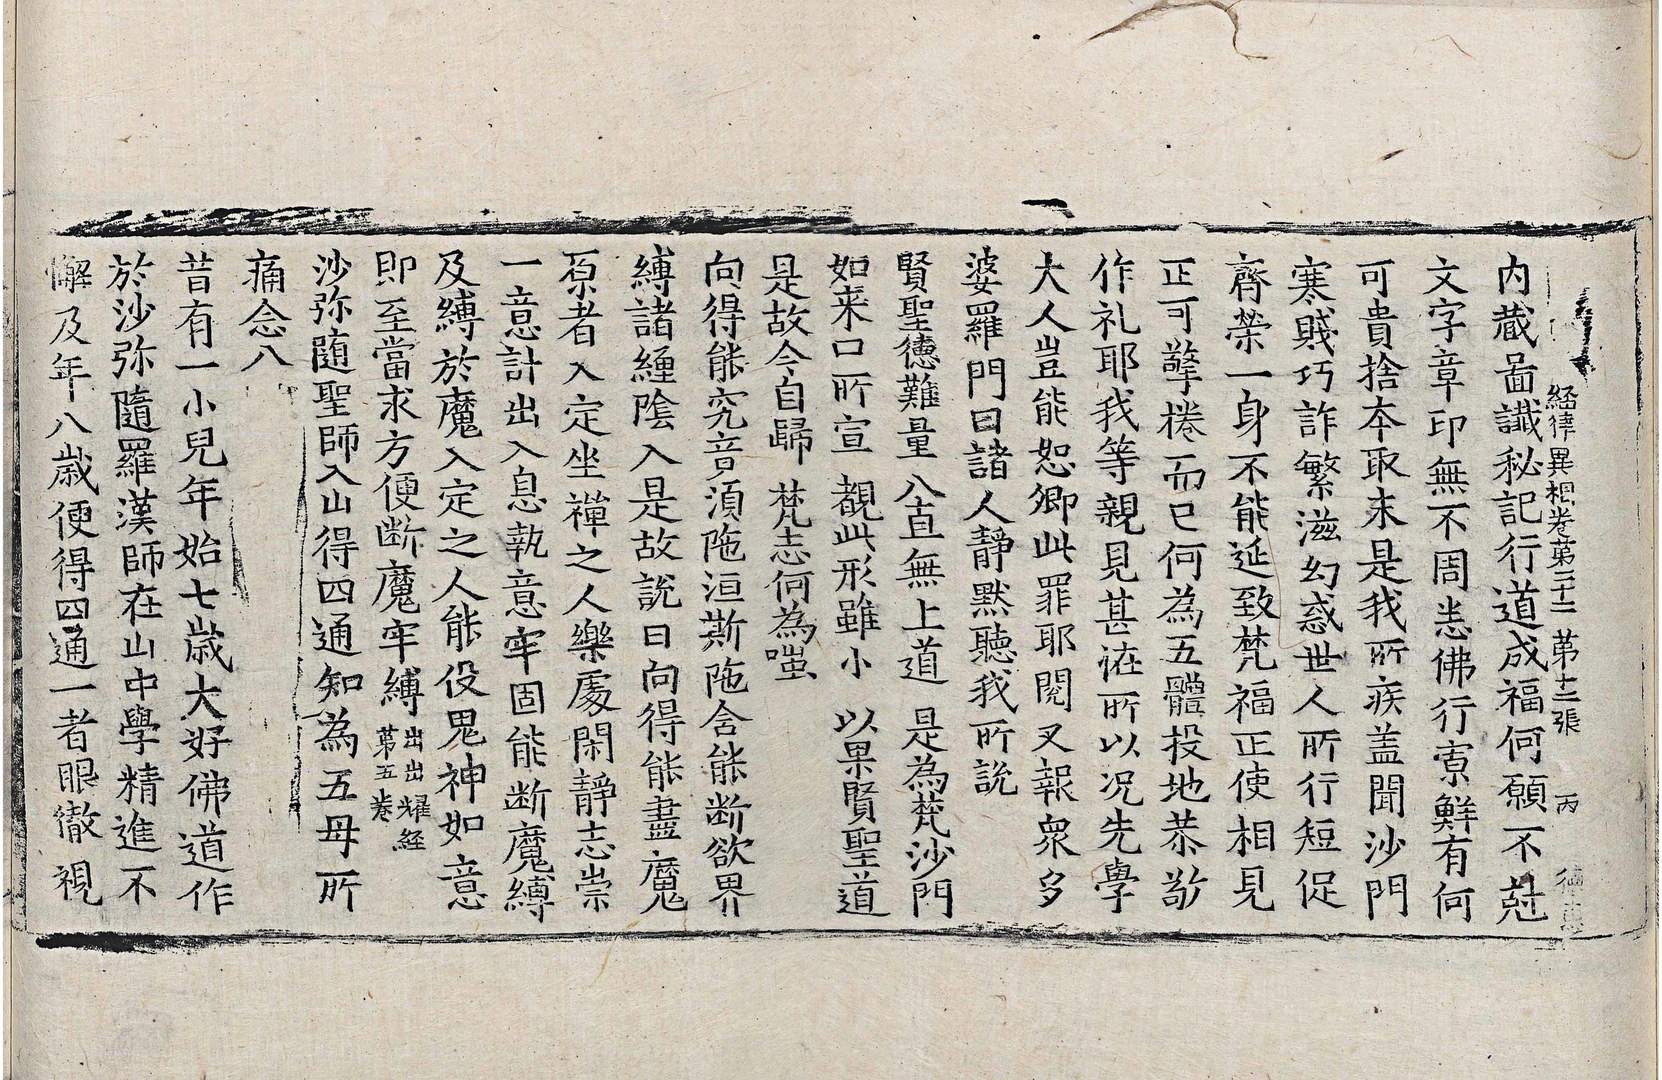 内蔵啚讖秘記行道成福何願不尅
経律異相卷第二十二 第十二張 丙
文字章印無不周悉佛行寮鮮有何
可貴捨本取末是我所疾盖聞沙門
寒賤巧詐繁滋幻惑世人所行短促
齊榮一身不能延致梵福正使相見
正可擎捲而已何為五體投地恭敬
作礼耶我等親見甚誑所以况先學
大人豈能恕卿此罪耶閱叉報衆多
婆羅門曰諸人靜黙聽我所説
賢聖德難量 八直無上道 是為梵沙門
如来口所宣 覩此形雖小 以果賢聖道
是故今自歸 梵志何為嗤
向得能究竟湏陁洹斯陁含能断欲界
縛諸纏陰入是故説曰向得能盡魔
原者入定坐禪之人樂處閑靜志崇
一意計出入息執意牢固能断魔縛
及縛於魔入定之人能役鬼神如意
即至當求方便断魔牢縛 出出耀経第五卷
沙弥随聖師入山得四通知為五母所
痛念八
昔有一小兒年始七歲大好佛道作
於沙弥隨羅漢師在山中學精進不
懈及年八歲便得四通一者眼徹視